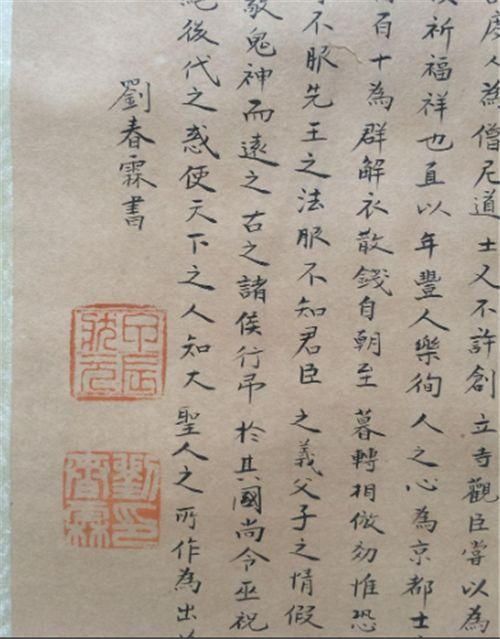 度人為僧尼道士又不許創立寺觀臣嘗以為
祈福祥也直以年豐人樂徇人之心為京都士
百十為群解衣散錢自朝至暮轉相倣効惟恐
不服先王之法服不知君臣之義父子之情假
敬鬼神而遠之古之諸侯行弔於其國尚令巫祝
絕後代之惑使天下之人知大聖人之所作為出
劉春霖書
甲辰狀元
劉印春霖